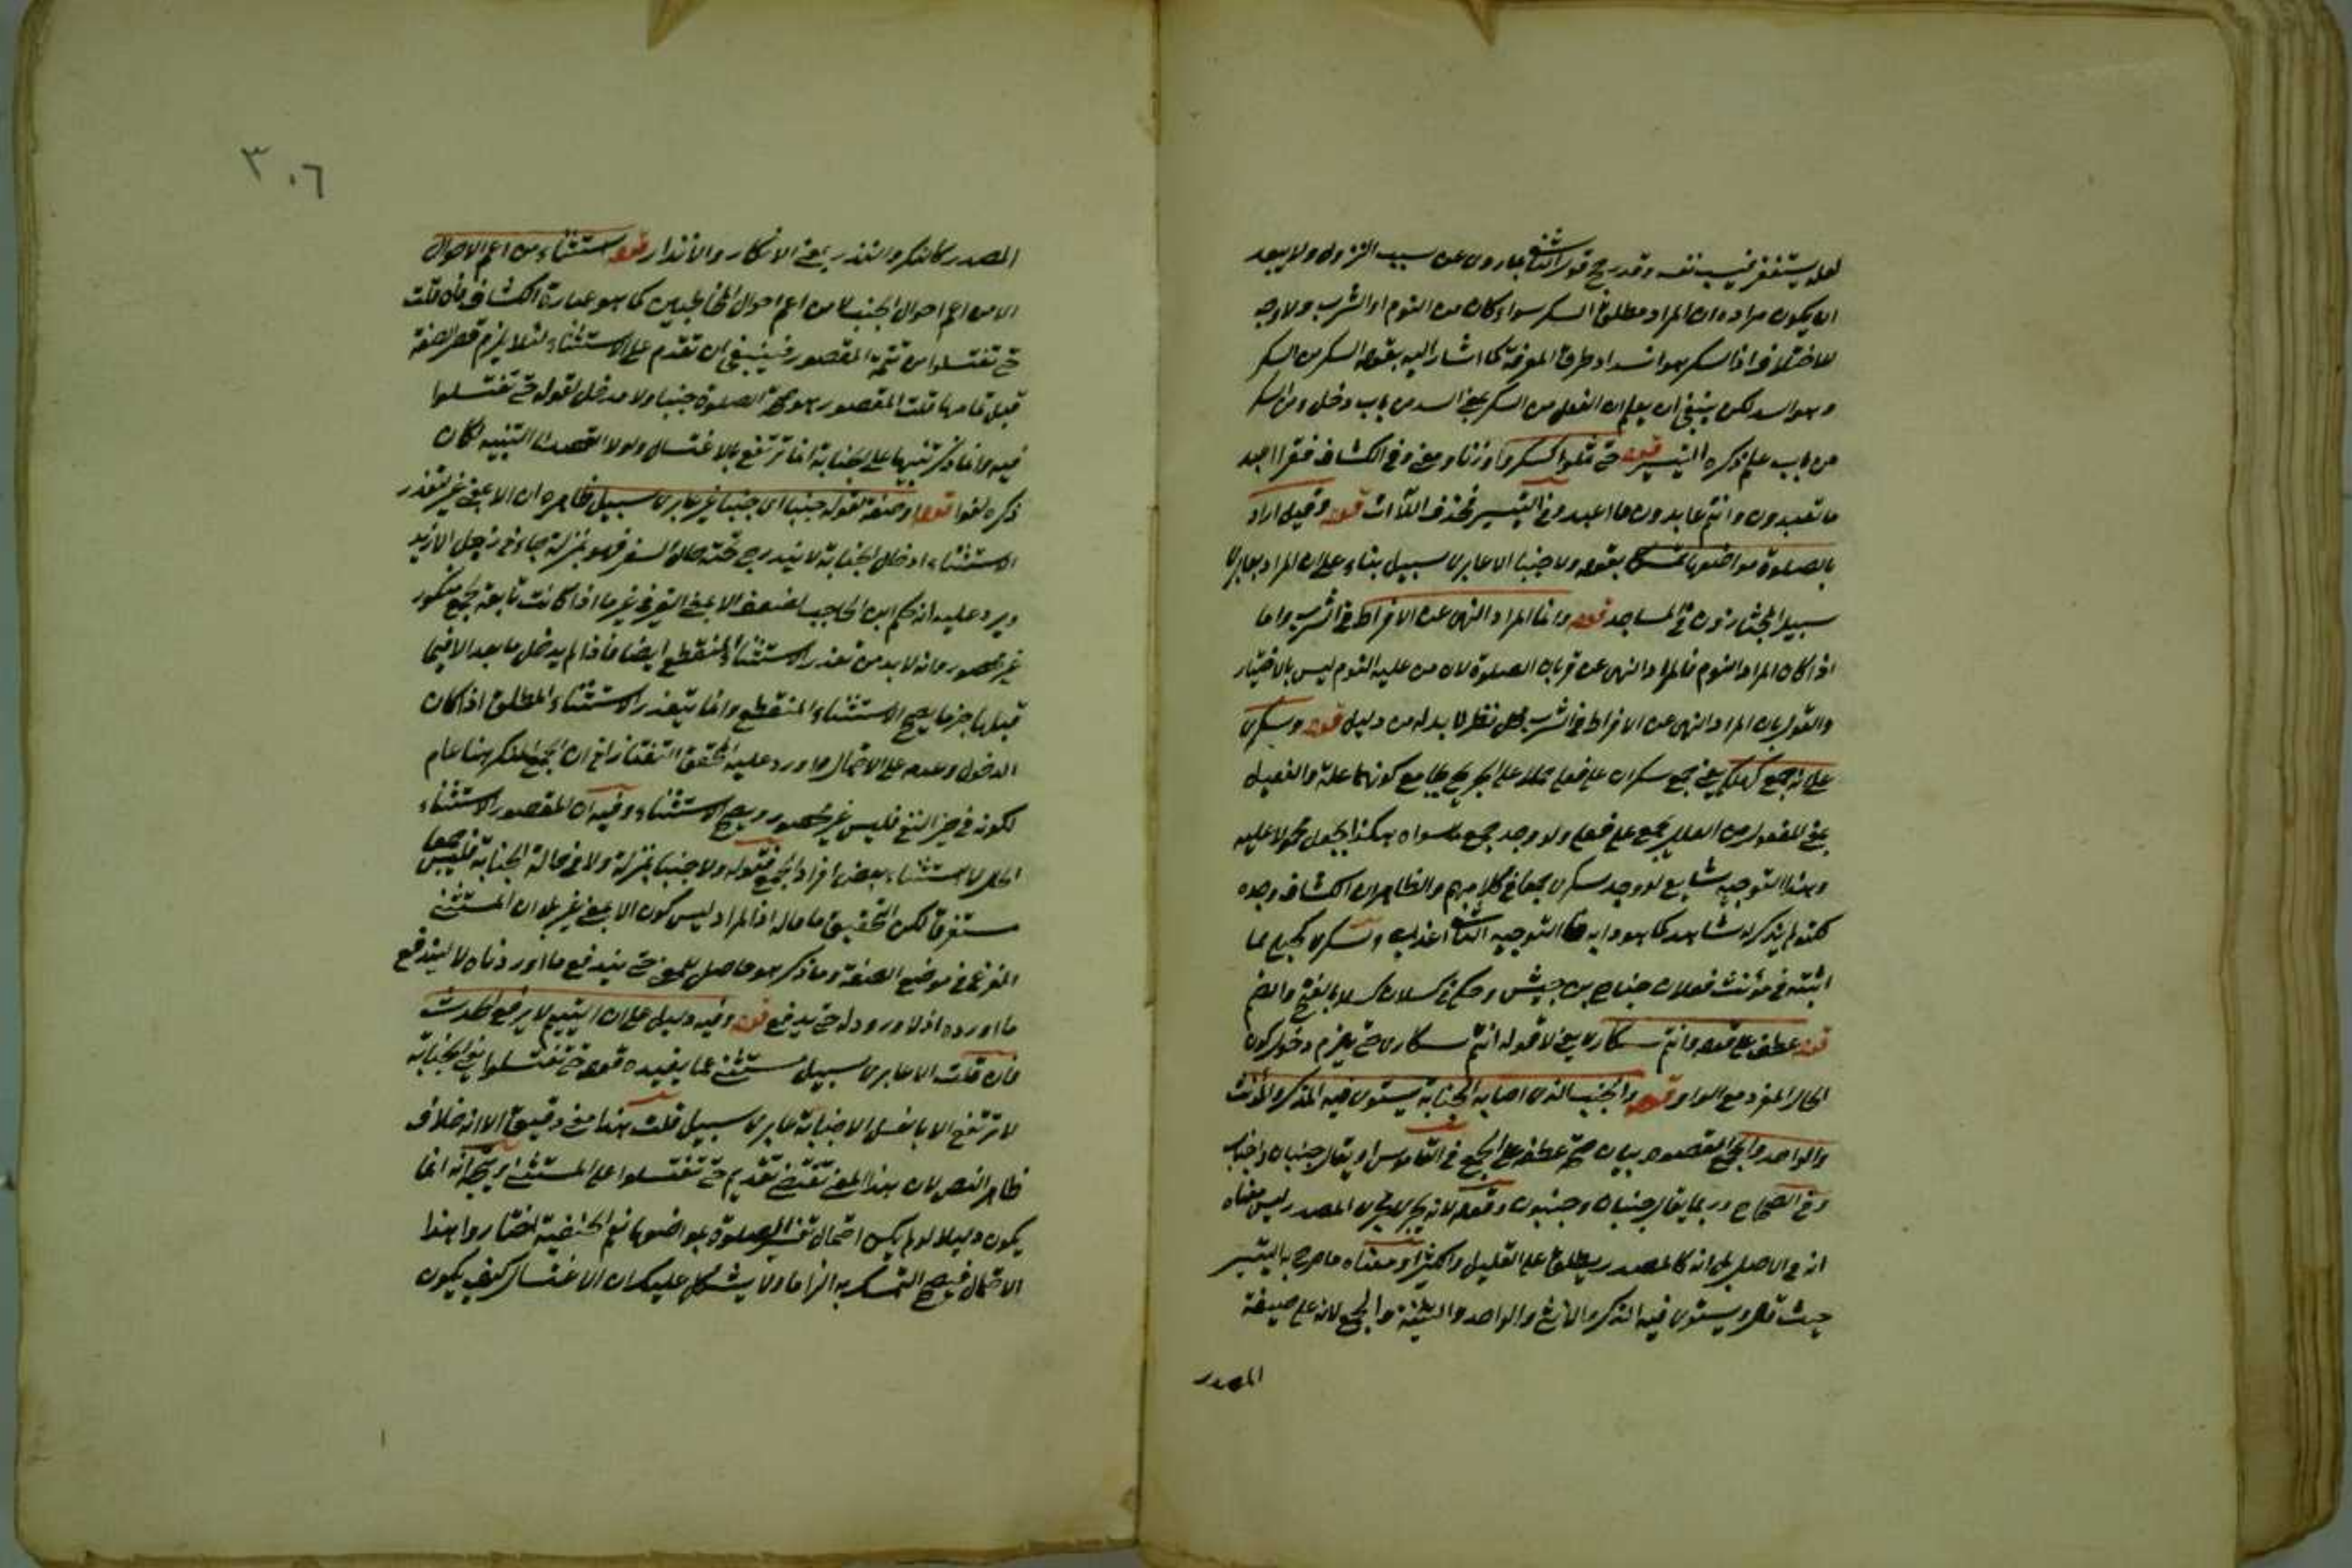 لعله يستغفر فيسب نفسه وقد رجح قول الثاني عبارة عن سبب النزول ولا يبعد
ان يكون مراده ان المراد مطلق السكر سواء كان من النوم او الشرب ولا وجه
للاختلاف اذ السكر هو انسداد طرق المعرفة كما اشار اليه بقوله السكر من السكر
وهو السد لكن ينبغي ان يعلم ان الفعل من السكر بمعنى السد من باب دخل ومن السكر
من باب علم ذكره التيسير قوله حتى تعلوا كسكروا وزنا ومعنى وفي الكشاف فقرأ اعبد
ما تعبدون وانتم عابدون ما اعبد وفي التيسير فحذف اللاآت قوله وقيل اراد
بالصلوة مواضعها بقوله ولا جنبا الا عابري سبيل بناء على ان المراد بعابري
سبيل المجتازون في المساجد قوله وانما المراد النهي عن الافراط في الشرب واما
اذا كان المراد النوم فالمراد النهي عن قربان الصلوة لان من عليه النوم ليس بالاختيار
والقول بان المراد النهي عن الافراط في الشرب محل نظر لا بد له من دليل قوله وسكرى
على انه جمع كهلكى يعني جمع سكران على فعلى حملا على الجريح بجامع كونهما علة والفعيل
بمعنى المفعول من العلل يجمع على فعلى ولو وجد جمع سواه هكذا يجعل محمولا عليه
وهذا التوجيه شايع لو وجد سكرى جمعا في كلامهم والظاهر ان الكشاف وجده
لم يذكر له شاهد كما هو دابه التوجيه الثاني وسكرى كحبلى مما
اثبته في مؤنث فعلان جناح بن حبيش وحكي كسلان كسلى بالفتح والضم
قوله عطف على قوله وانتم سكارى يعني لا قوله انتم سكارى حتى يلزم دخول كون
الحال المفرد مع الواو قوله والجنب الذي اصابه الجنابة يستوي فيه المذكر والمؤنث
والواحد والجمع المقصود بيان صحة عطفه على الجمع في القاموس او يقال جنبان واجناب
وفي الصحاح وربما يقال جنبان وجنبون وقوله لانه يجري مجرى المصدر ليس معناه
انه في الاصل بل انه كالمصدر يطلق على القليل والكثير او معناه ما صرح به التيسير
حيث قال ويستوي فيه الذكر والانثى والواحد والتثنية والجمع لانه على صيغة
المصدر
٣٠٦
المصدر كالنكر والنذر بمعنى الانكار والانذار قوله استثناء من اعم الاحوال
الا من اعم احوال الجنب لا من اعم احوال المخاطبين كما هو عبارة الكشاف فان قلت
حتى تغتسلوا من تتمة المقصور فينبغي ان تقدم على الاستثناء لئلا يلزم قصر الصفة
قبل تمامها قلت المقصور هو الصلوة جنبا ولا مدخل لقوله حتى تغتسلوا
فيه وانما ذكر تنبيها على الجنابة انما ترتفع بالاغتسال ولولا التنبيه لكان
ذكره لغوا قوله او صفة لقوله جنبا اي جنبا غير عابري سبيل ظاهره ان الا بمعنى غير لتعذر
الاستثناء اذ حال الجنابة لا يندرج تحته حال السفر فهو بمنزلة جاءني رجل الا زيد
ويرد عليه انه حكم ابن الحاجب لضعف الا بمعنى الغير في غير ما اذا كانت تابعة لجمع منكور
غير محصور وانه لا بد من تعذر الاستثناء المنقطع ايضا فاذا لم يدخل ما بعد الا فيما
قبلها جزما يصح الاستثناء المنقطع وانما يتعذر الاستثناء المطلق اذا كان
الدخول وعدمه على الاحتمال واورد عليه المحقق التفتازاني ان الجمع المنكر هنا عام
لكونه في حيز النفي فليس غير محصور ويصح الاستثناء وفيه ان المقصور الاستثناء
الحال لا استثناء بعض افراد الجمع فقوله ولا جنبا بمنزلة ولا في حالة الجنابة فليس جمعا
مستغرقا لكن التحقيق ما قاله اذ المراد ليس كون الا بمعنى غير بل ان المستثنى
المفرغ في موضع الصفة وما ذكر هو حاصل المعنى حتى يندفع ما اوردناه لا ليندفع
ما اورده اذ لا ورود له حتى يدفع قوله وفيه دليل على ان التيمم لا يرفع الحدث
فان قلت الا عابري سبيل مستثنى عما يفيده قوله حتى تغتسلوا يعني الجنابة
لا ترتفع الا بالغسل الا جنابة عابري سبيل قلت هذا معنى دقيق الا انه خلاف
ظاهر النص لان هذا المعنى يقتضي تقديم حتى تغتسلوا على المستثنى ويتجه انه انما
يكون دليلا لو لم يكن احتمال تفسير الصلوة بمواضعها نعم الحنفية اختاروا هذا
الاحتمال فيصح التمسك به الزاما ولا يشكل عليك ان الاغتسال كيف يكون